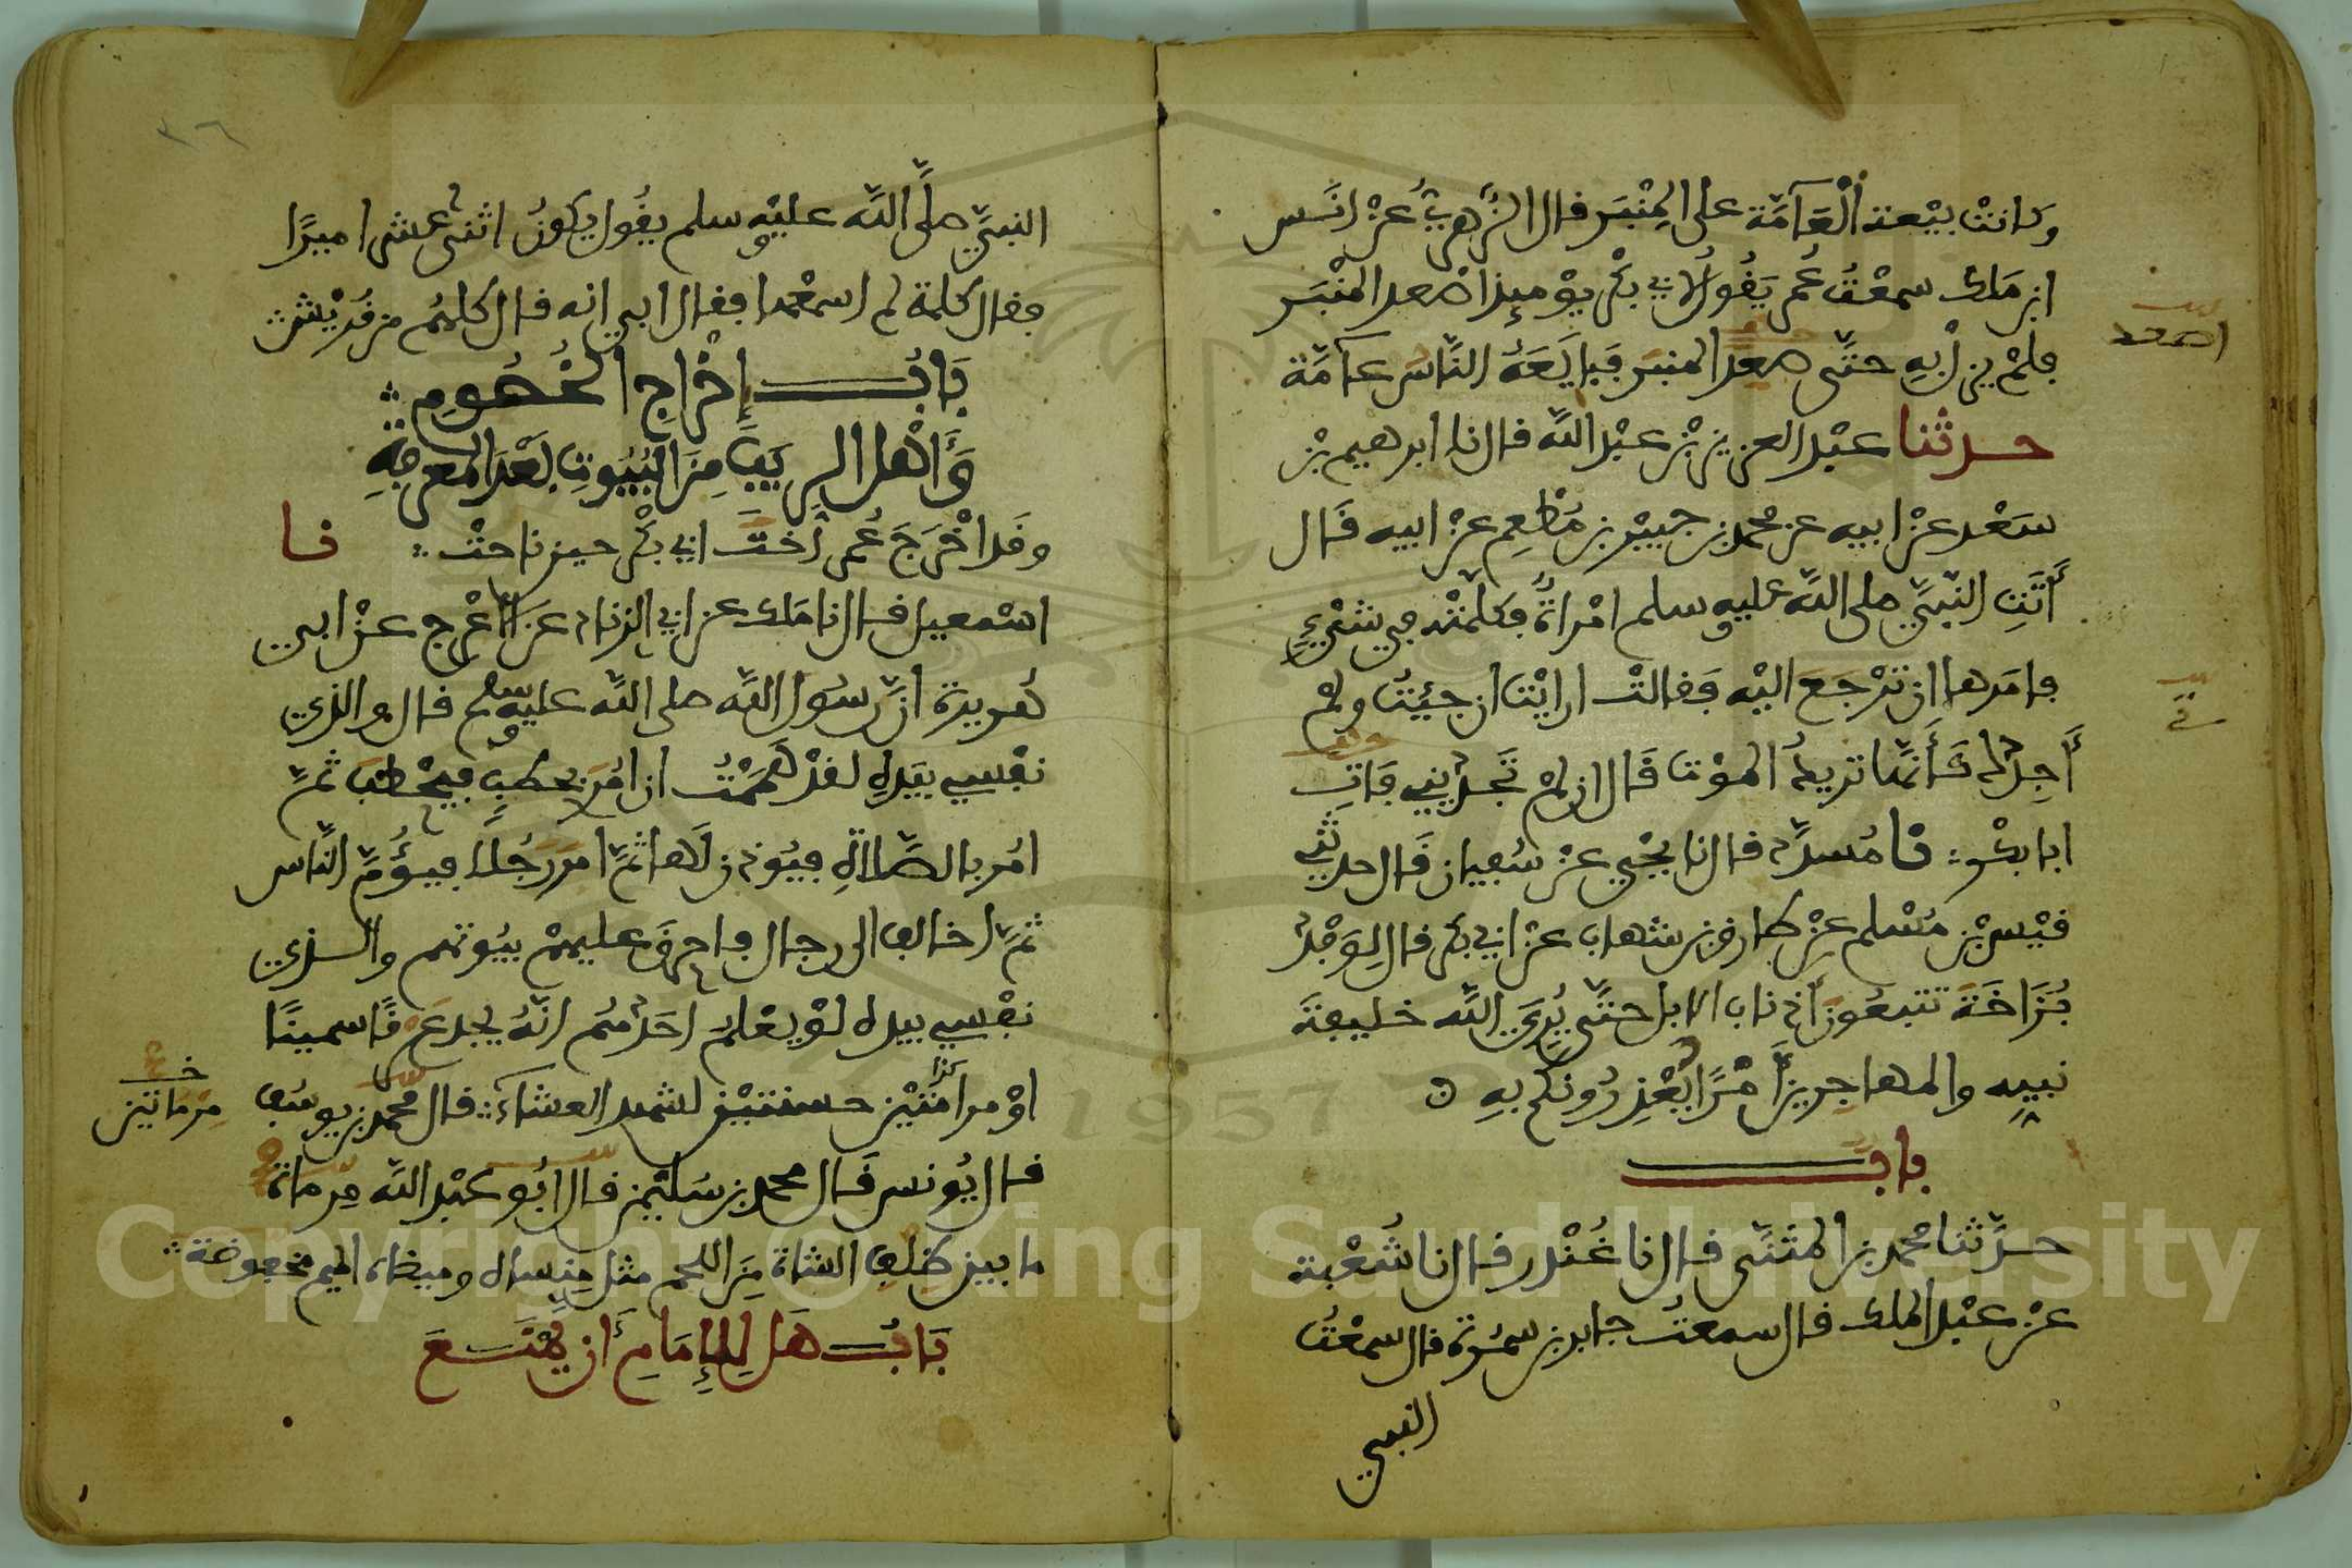 وكانتْ بيْعة الْعَامَّة على المِنْبَر قال الزُّهريُّ عنْ انَس
ابن مَلك سمعْتُ عُمر يَقُولُ لابي بكْر يوْميذ اصْعد المنْبَر
فلمْ يزلْ بهِ حتَّى صعدَ المنبَر فبَايَعَهُ النَّاسُ عامَّة
حدثنا عبْد العزيز بْن عبْد الله قال نا ابرهيم بْن
سَعْد عنْ ابيه عن محمد بن جبيْر بن مُطْعِم عنْ ابيه قَال
أَتَتِ النَّبيَّ صلى الله عليه وسلم امْراةٌ فكلمتْه في شىْءٍ
فامَرها ان ترْجعَ اليْه فقالتْ ارايْتَ ان جئتُ ولمْ
أَجِدْكَ كَأَنَّها تريدُ الموْت قَال ان لمْ تَجديني فَاتِ
ابا بكْر نا مُسدَّد قال نا يحْيى عنْ سُفيان قَال حدثني
قيْس بْن مُسْلم عنْ طارق بن شهاب عنْ ابي بكْر قال لِوَفْد
بُزَاخَةَ تتبعُونَ أذنابَ الابل حتَّى يُرِيَ الله خليفةَ
نبيهِ والمهاجرين أَمْرًا يَعْذِرُونكم بهِ
بابٌ
حدَّثنا محمد بن المثنَّى قال نا غُنْدر قال نا شُعْبة
عنْ عبْد الملك قال سمعتُ جابر بن سمُرة قال سمعْتُ
النبي
اصعد
النبيَّ صلَّى الله عليْه وسلم يقُول يكونُ اثنى عشر اميرًا
فقال كلمة لم اسمعْها فقال ابي انه قال كلهُم من قُريْش
بَابُ إخْراج الخُصُومِ
وَأهْل الرِيَبِ مِنَ البُيُوتِ بَعْدَ المعرفةِ
وقد اخْرَجَ عُمر أخْتَ ابي بكْر حين ناحتْ نا
اسْمعيل قال نا مَلك عن ابي الزناد عنَ الاعْرج عنْ ابي
هُريرة انَّ رسُول الله صلى الله عليه وسلم قال والذي
نفْسي بيَدِه لقدْ هَممْتُ ان امُرَ بحطبٍ فيحْطبَ ثمَّ
امُر بالصَّلاةِ فيُوذن لَها ثمَّ امر رجُلا فيؤُمَّ النَّاس
ثمَّ اخالف الى رجال فاحرقَ عليهمْ بيُوتهم والذي
نفْسي بيده لوْ يعْلمُ احَدُهُم انَّهُ يجد عَرْقًا سمينًا
اوْ مرماتيْن حسنتيْن لشهد العشاءَ قال محمد بن يوسُف
قال يُونس قَال محمد بن سُليْمن قال ابُو عبْد الله مِرماة
ما بين ظِلْفِ الشاة مِنَ اللحم مثل مِنساه وميضاه الميم مخفوضة
بَابُ هَل لِلْإِمَامِ أَن يمْنَعَ
كذا
خ
مِرمَاتين
٣٦